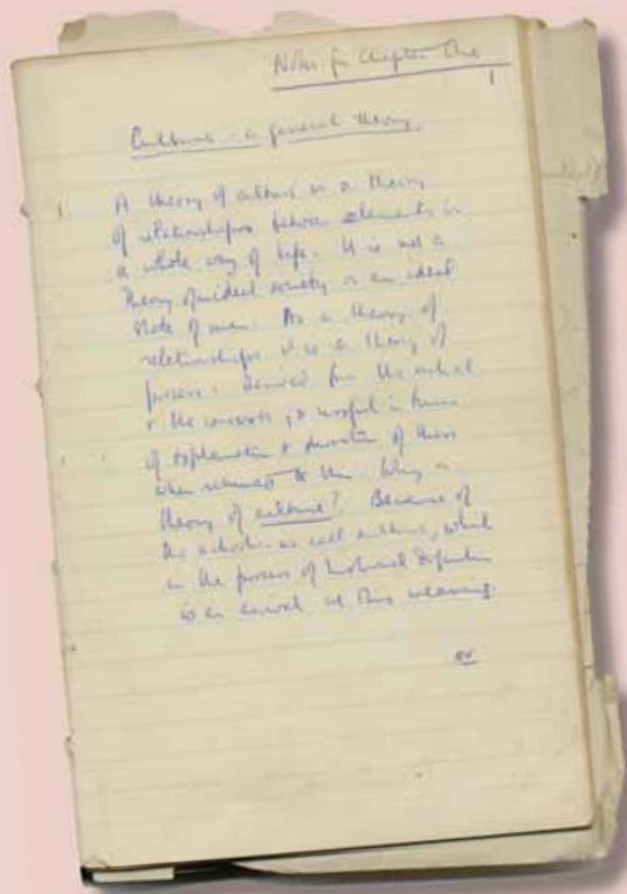 Notes for Chapter One
1
Culture - a general theory.
1. A theory of culture is a theory
of relationships between elements in
a whole way of life. It is not a
theory of ideal society or an ideal
state of men. As a theory of
relationships it is a theory of
process: derived from the actual
& the concrete, & useful in terms
of explanation & of these
when returned to them. Why a
theory of culture? Because of
the we call culture, which
in the process of historical definition
is an at this meaning.
ov